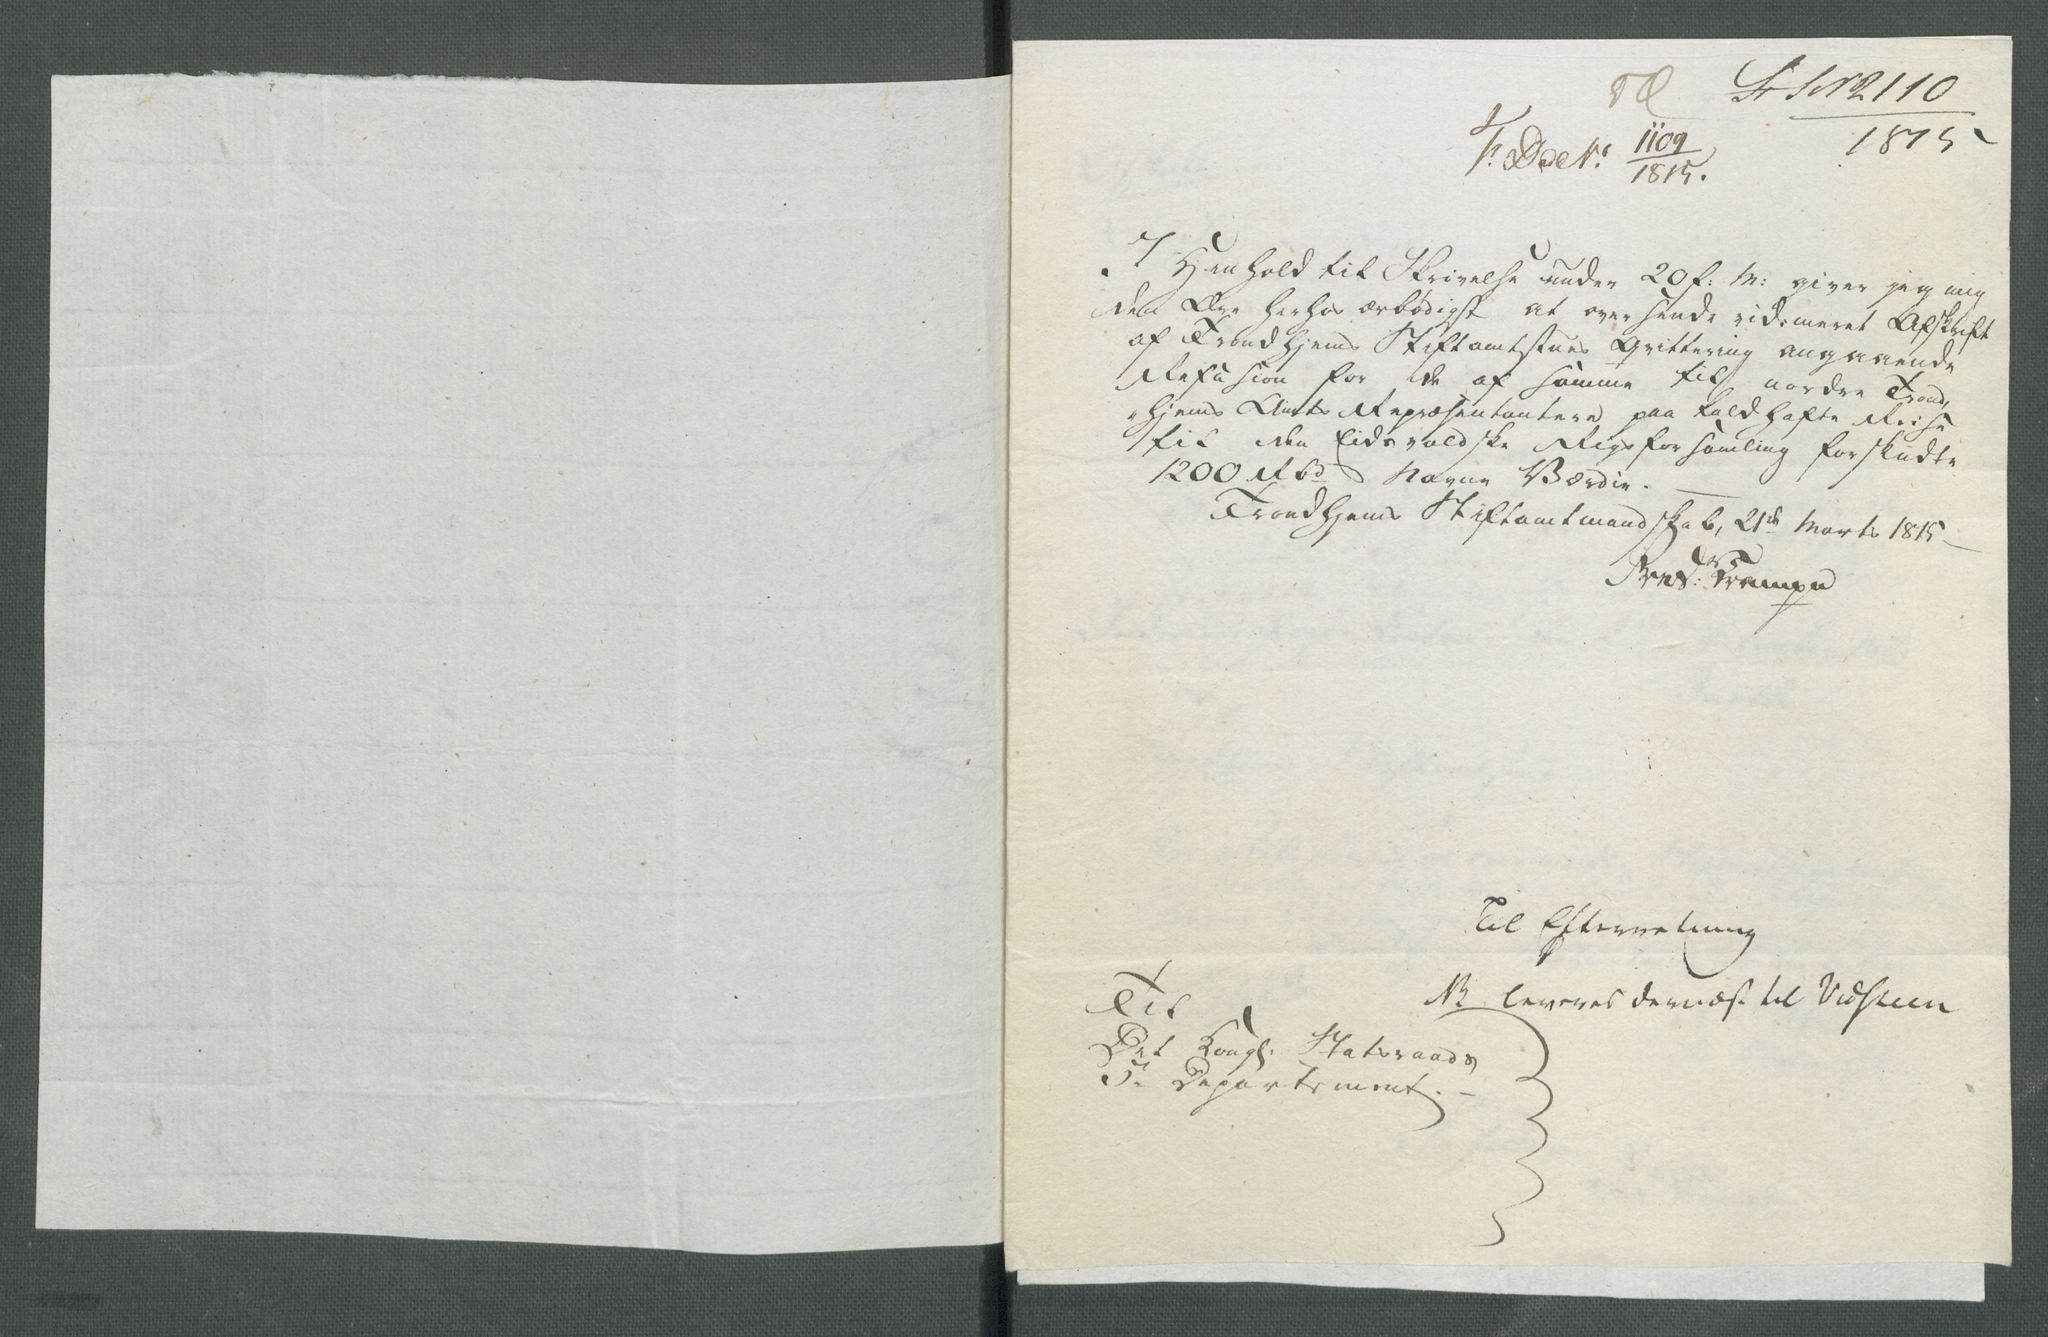 2110
1815
1109
1815.
I Henhold til Skrivelse under 20 f: M: giver jeg mig
den Ære herhos ærbødigst at oversende vidimeret Afskrift
af Trondhjems Stiftamtstues Qvittering angaaende
Refusion for de af samme til nordre Trond,
„hjems Amts Repræsentantere paa haldhafte Reise
til den Eidsvoldske Rigsforsamling forskudte
1200 Rbd Navne Værdie. —
Trondhjems Stiftamtmandskab, 21de Marts 1815 —
Fred: Trampe
Til Efterretning
NB leveres dernæst til Vidsteen
Til
Det Kongl. Statsraads
5te Departement. —